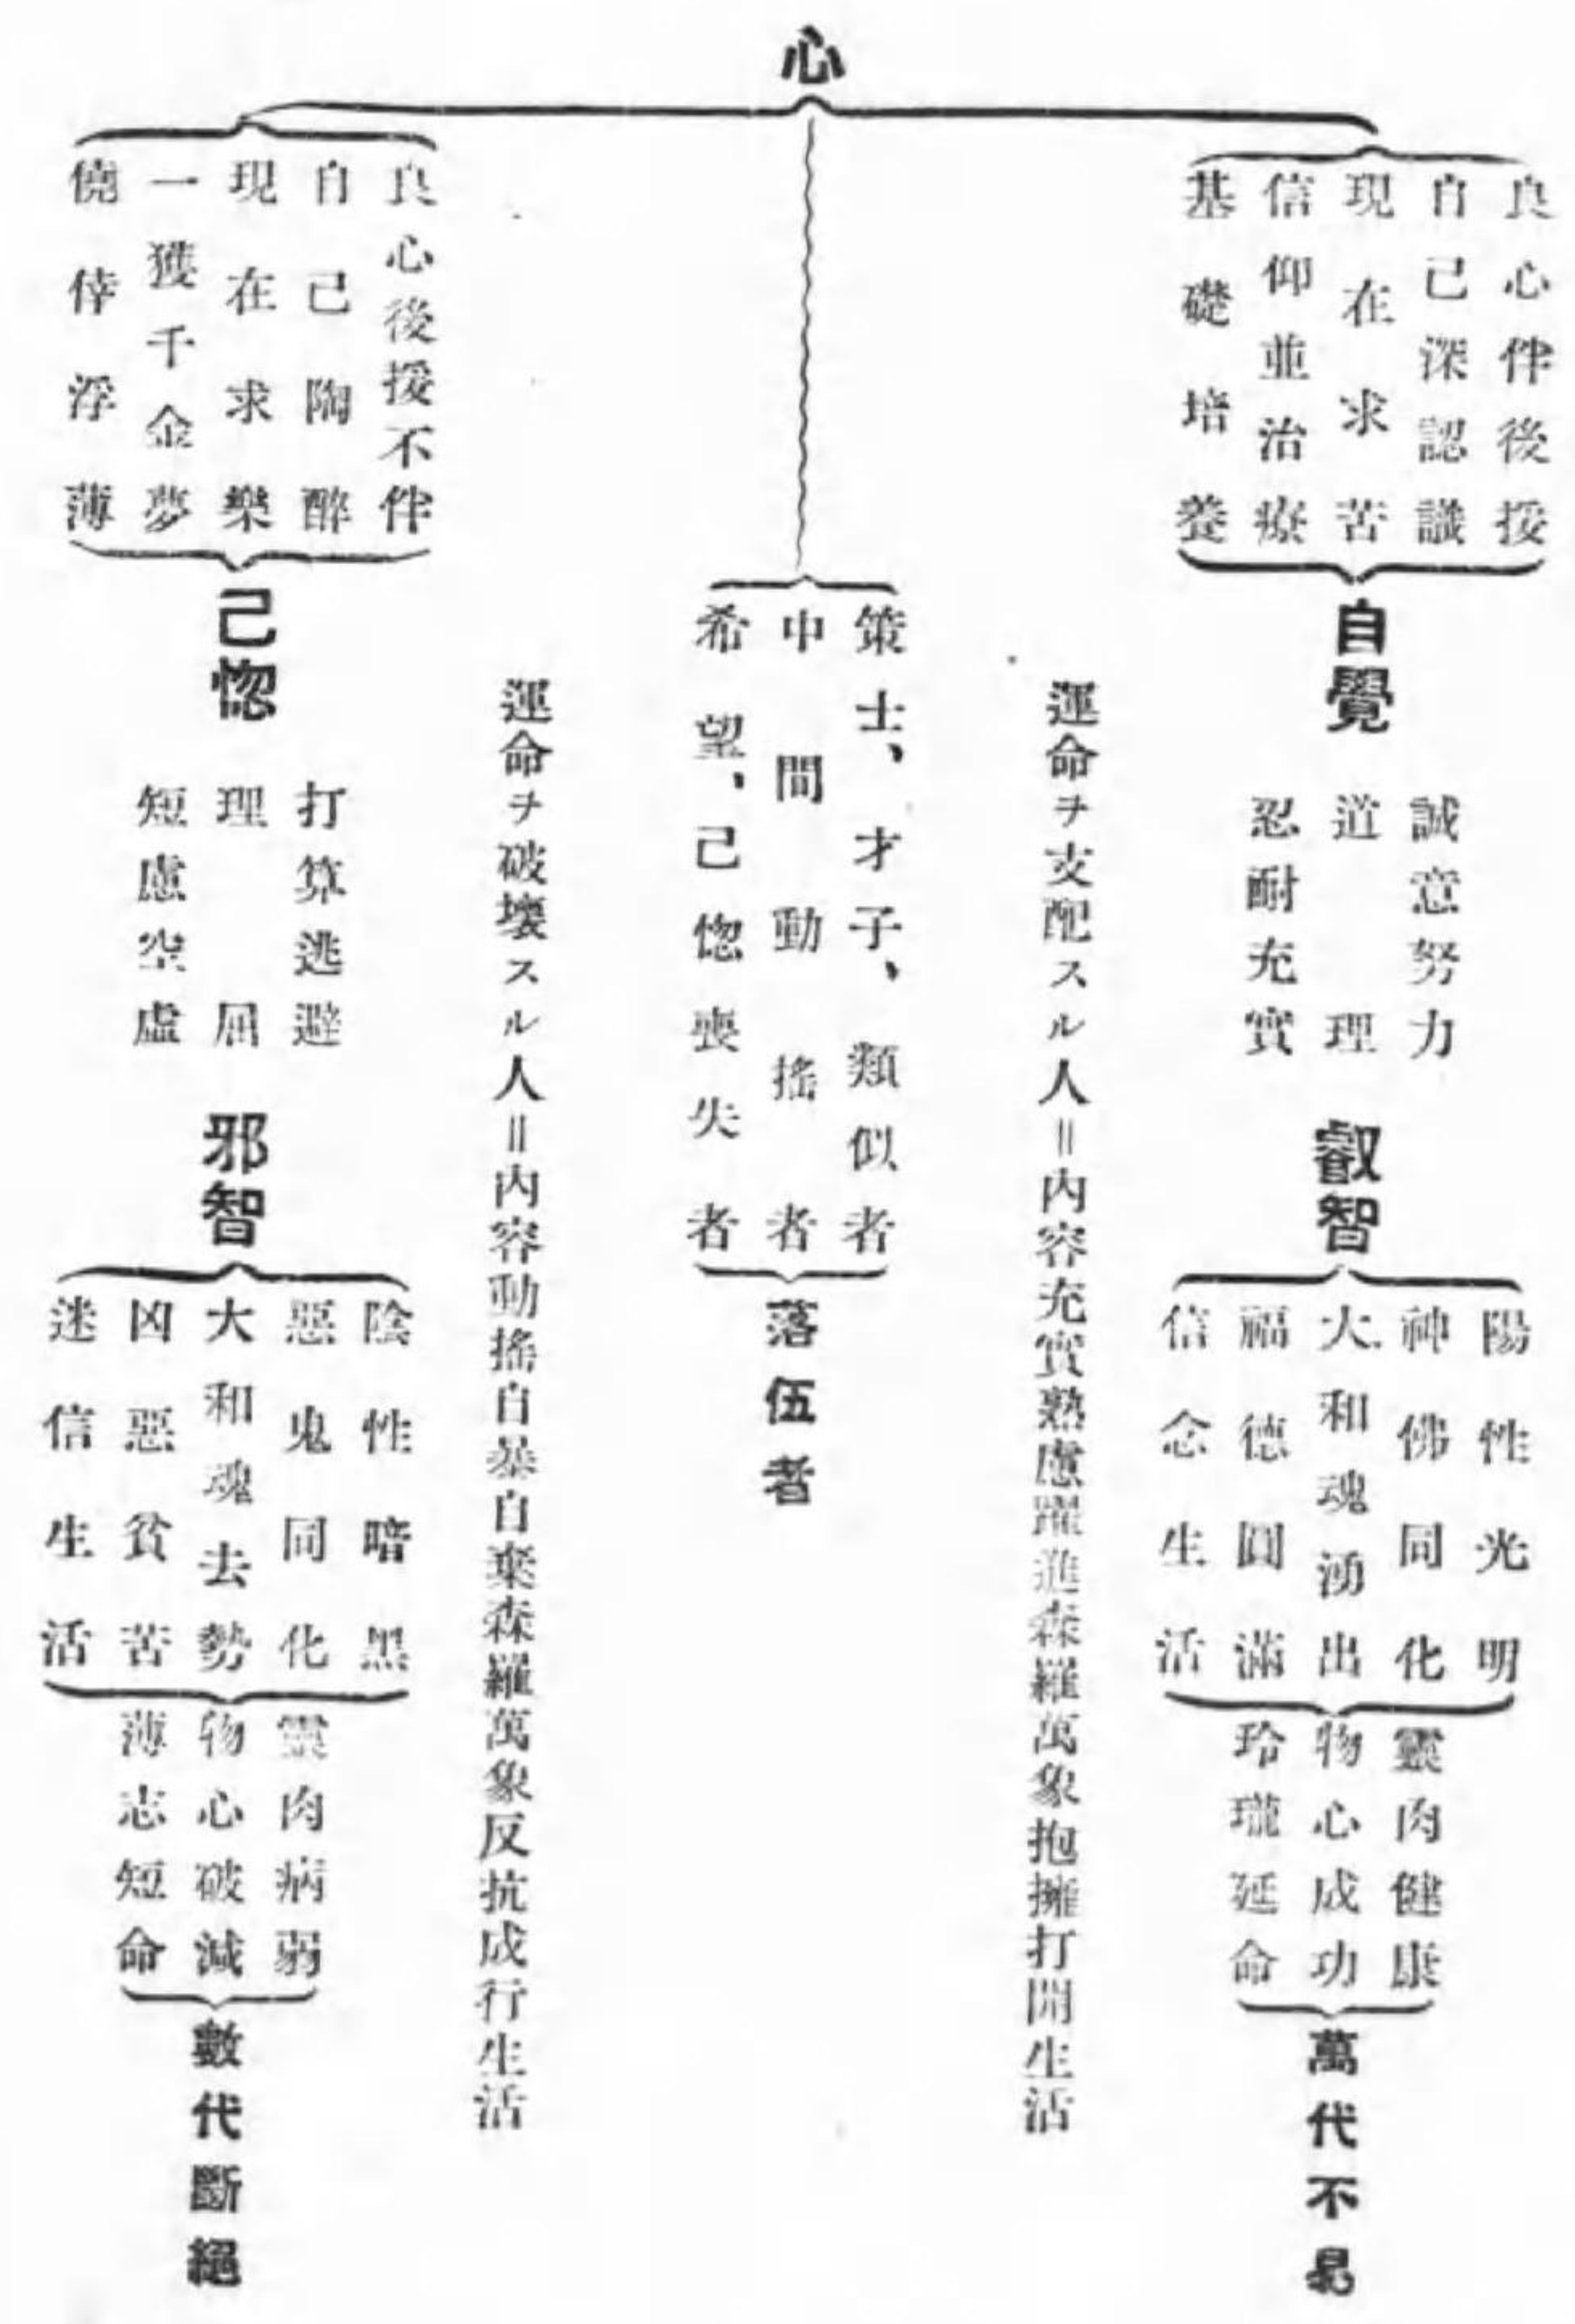 心
良心伴後援
自己深認識
現在求苦
信仰並治療
基礎培養
自覺
誠意努力
道理
忍耐充實
叡智
陽性光明
神佛同化
大和魂湧出
福德圓滿
信念生活
靈肉健康
物心成功
玲瓏延命
萬代不易
運命ヲ支配スル人＝內容充實熟慮躍進森羅萬象抱擁打開生活
策士、才子、類似者
中間動搖者
希望、己惚喪失者
落伍者
運命ヲ破壞スル人＝內容動搖自暴自棄森羅萬象反抗成行生活
良心後援不伴
自己陶醉
現在求樂
一獲千金夢
僥倖浮薄
己惚
打算逃避
理屈
短慮空虛
邪智
陰性暗黑
惡鬼同化
大和魂去勢
凶惡貧苦
迷信生活
靈肉病弱
物心破滅
薄志短命
數代斷絕